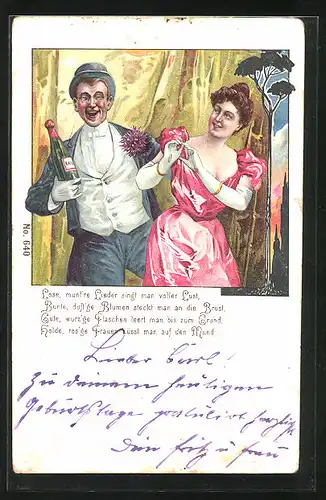 No. 640
Lose, muntre Lieder singt man voller Lust,
Bunte, duft'ge Blumen steckt man an die Brust,
Gute, würz'ge Flaschen leert man bis zum Grund,
Holde, ros'ge Frauen küsst man auf den Mund
Lieber Carl!
Zu deinem heutigen
Geburtstage gratulirt herzlichst
Dein Fritz u Frau